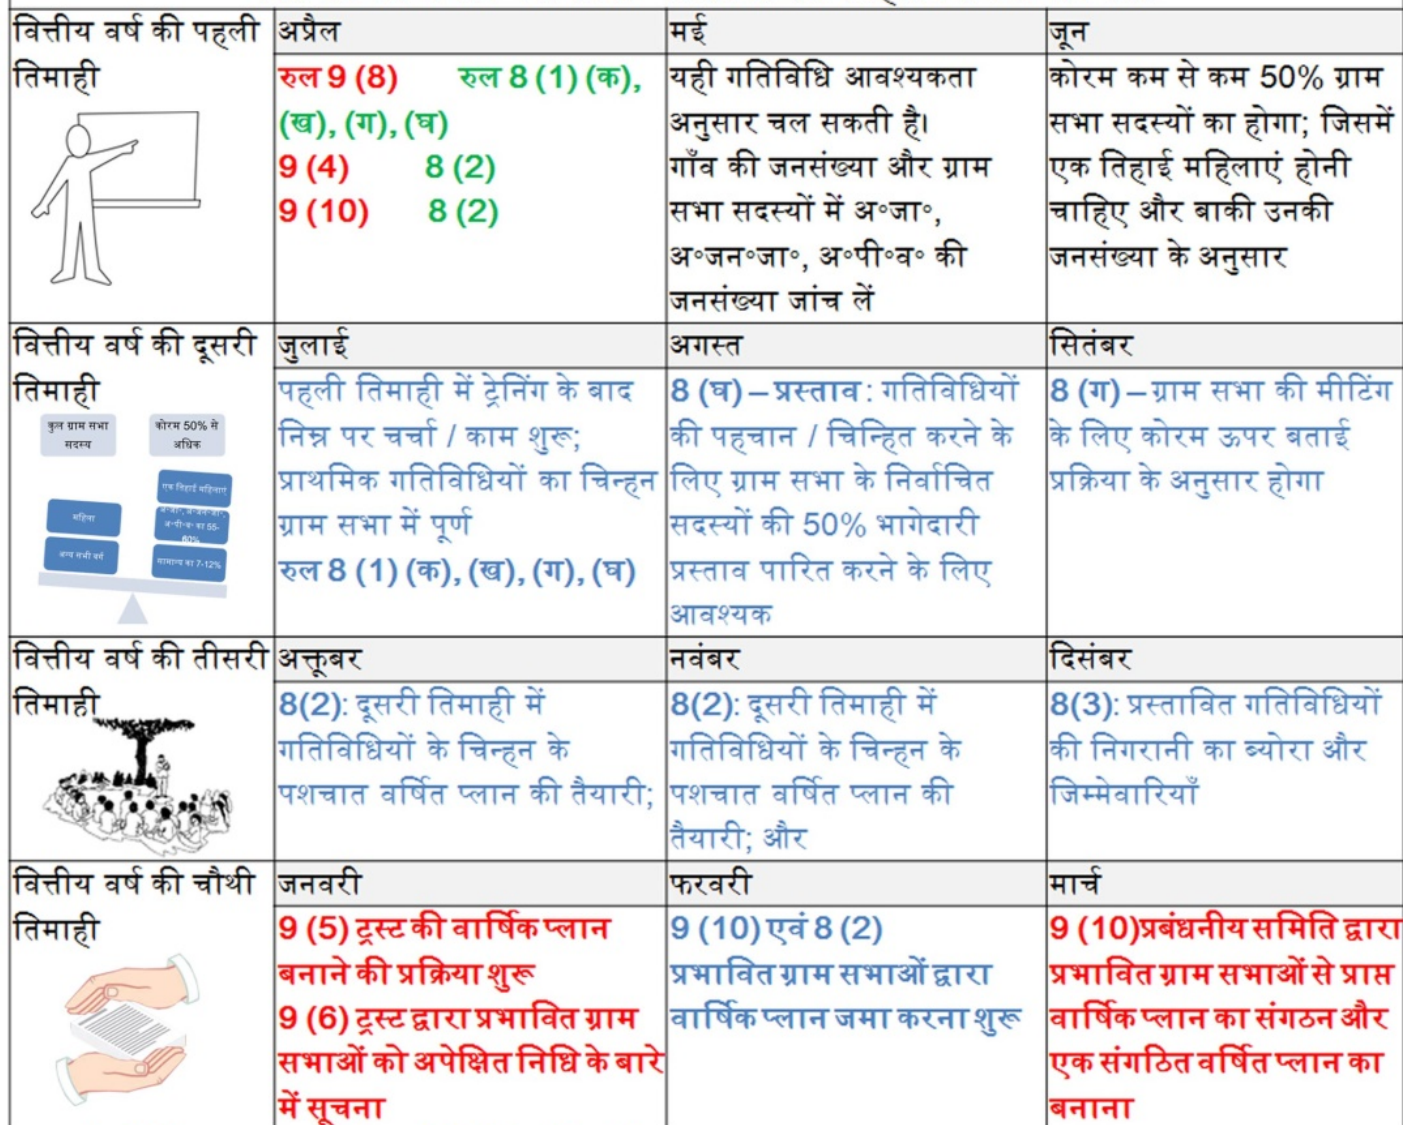 वित्तीय वर्ष की पहली
तिमाही
अप्रैल
रुल 9 (8) रुल 8 (1) (क),
(ख), (ग), (घ)
9 (4) 8 (2)
9 (10) 8 (2)
मई
यही गतिविधि आवश्यकता
अनुसार चल सकती है।
गाँव की जनसंख्या और ग्राम
सभा सदस्यों में अ॰जा॰,
अ॰जन॰जा॰, अ॰पी॰व॰ की
जनसंख्या जांच लें
जून
कोरम कम से कम 50% ग्राम
सभा सदस्यों का होगा; जिसमें
एक तिहाई महिलाएं होनी
चाहिए और बाकी उनकी
जनसंख्या के अनुसार
वित्तीय वर्ष की दूसरी
तिमाही
कुल ग्राम सभा
सदस्य
कोरम 50% से
अधिक
एक तिहाई महिलाएं
महिला
अ॰पी॰व॰ का 55-
60%
अन्य सभी वर्ग
सामान्य का 7-12%
जुलाई
पहली तिमाही में ट्रेनिंग के बाद
निम्न पर चर्चा / काम शुरू;
प्राथमिक गतिविधियों का चिन्हन
ग्राम सभा में पूर्ण
रुल 8 (1) (क), (ख), (ग), (घ)
अगस्त
8 (घ) – प्रस्ताव: गतिविधियों
की पहचान / चिन्हित करने के
लिए ग्राम सभा के निर्वाचित
सदस्यों की 50% भागेदारी
प्रस्ताव पारित करने के लिए
आवश्यक
सितंबर
8 (ग) – ग्राम सभा की मीटिंग
के लिए कोरम ऊपर बताई
प्रक्रिया के अनुसार होगा
वित्तीय वर्ष की तीसरी
तिमाही
अक्तूबर
8(2): दूसरी तिमाही में
गतिविधियों के चिन्हन के
पशचात वर्षित प्लान की तैयारी;
नवंबर
8(2): दूसरी तिमाही में
गतिविधियों के चिन्हन के
पशचात वर्षित प्लान की
तैयारी; और
दिसंबर
8(3): प्रस्तावित गतिविधियों
की निगरानी का ब्योरा और
जिम्मेवारियाँ
वित्तीय वर्ष की चौथी
तिमाही
जनवरी
9 (5) ट्रस्ट की वार्षिक प्लान
बनाने की प्रक्रिया शुरू
9 (6) ट्रस्ट द्वारा प्रभावित ग्राम
सभाओं को अपेक्षित निधि के बारे
में सूचना
फरवरी
9 (10) एवं 8 (2)
प्रभावित ग्राम सभाओं द्वारा
वार्षिक प्लान जमा करना शुरू
मार्च
9 (10)प्रबंधनीय समिति द्वारा
प्रभावित ग्राम सभाओं से प्राप्त
वार्षिक प्लान का संगठन और
एक संगठित वर्षित प्लान का
बनाना